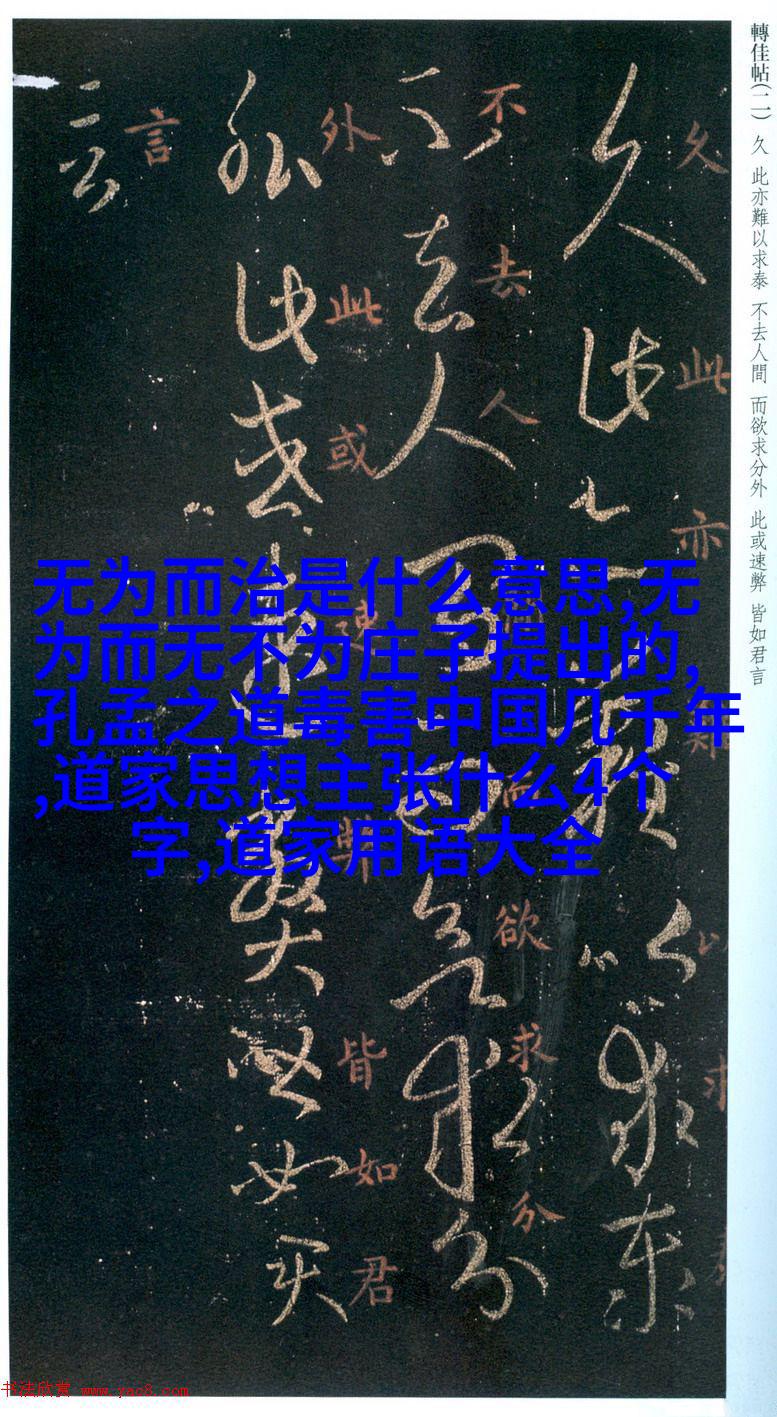 轉佳帖(二) 久 此亦難以求泰 不去人間 而欲求分外 此或速弊 皆如君言
久此亦難以求
不去人而欲求分
外此或速弊皆如君
言
无为而治是什么意思,无
为而无不为庄子提出的,
孔孟之道毒害中国几千年
,道家思想主张什么4个
字,道家用语大全
书法欣赏 www.yac8.com